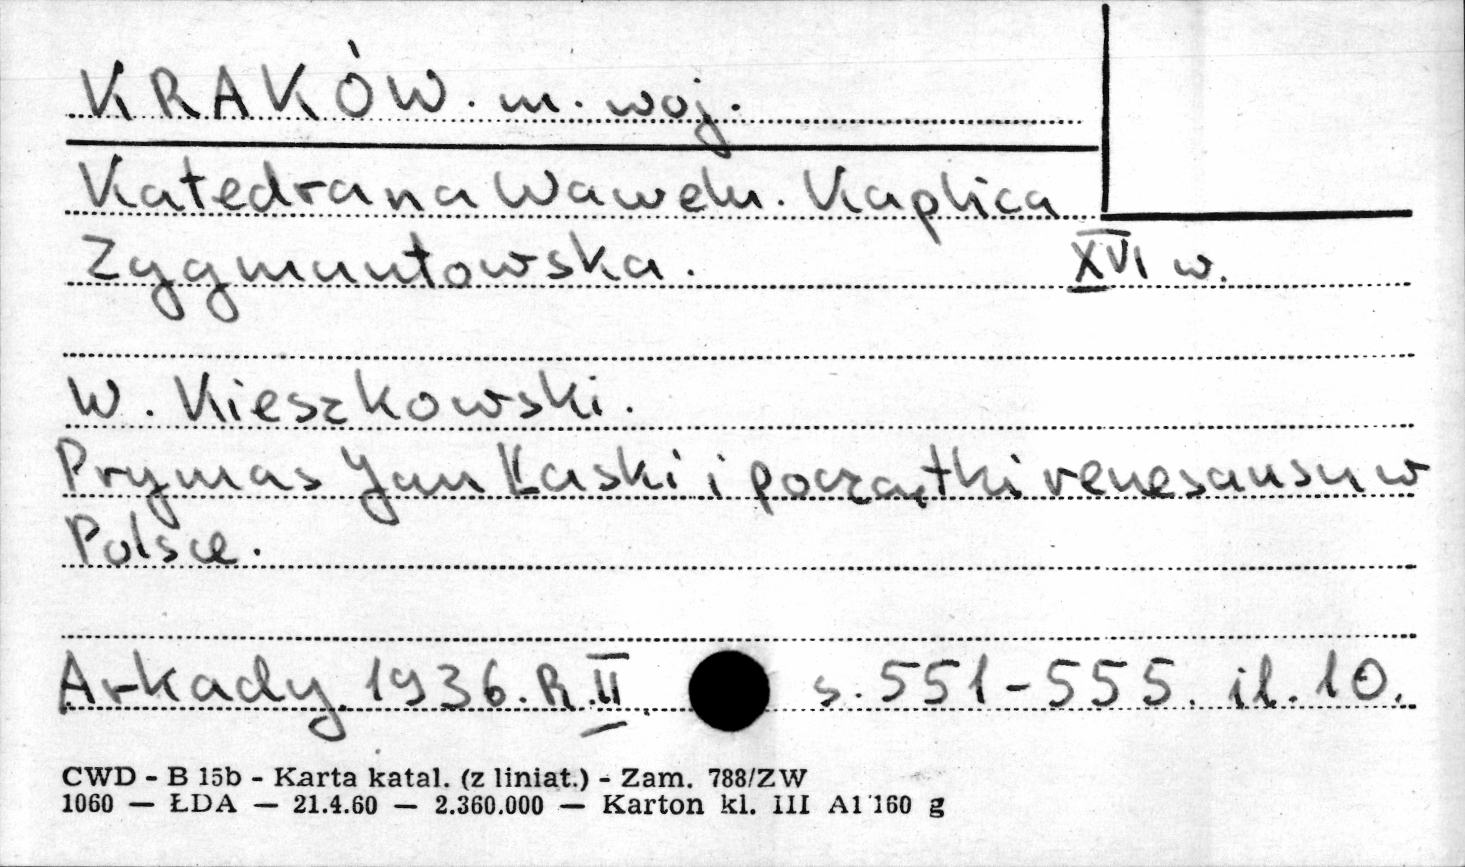 KRAKÓW. m. woj.
Katedra na Wawelu. Kaplica
Zygmuntowska. XVI w.
W. Kieszkowski.
Prymas Jan Łaski i początki renesansu w
Polsce.
Arkady. 1936. R. II. s. 551-555. il. 10.
CWD - B 15b - Karta katal. (z liniat.) - Zam. 788/ZW
1060 — ŁDA — 21.4.60 — 2.360.000 — Karton kl. III A1 160 g